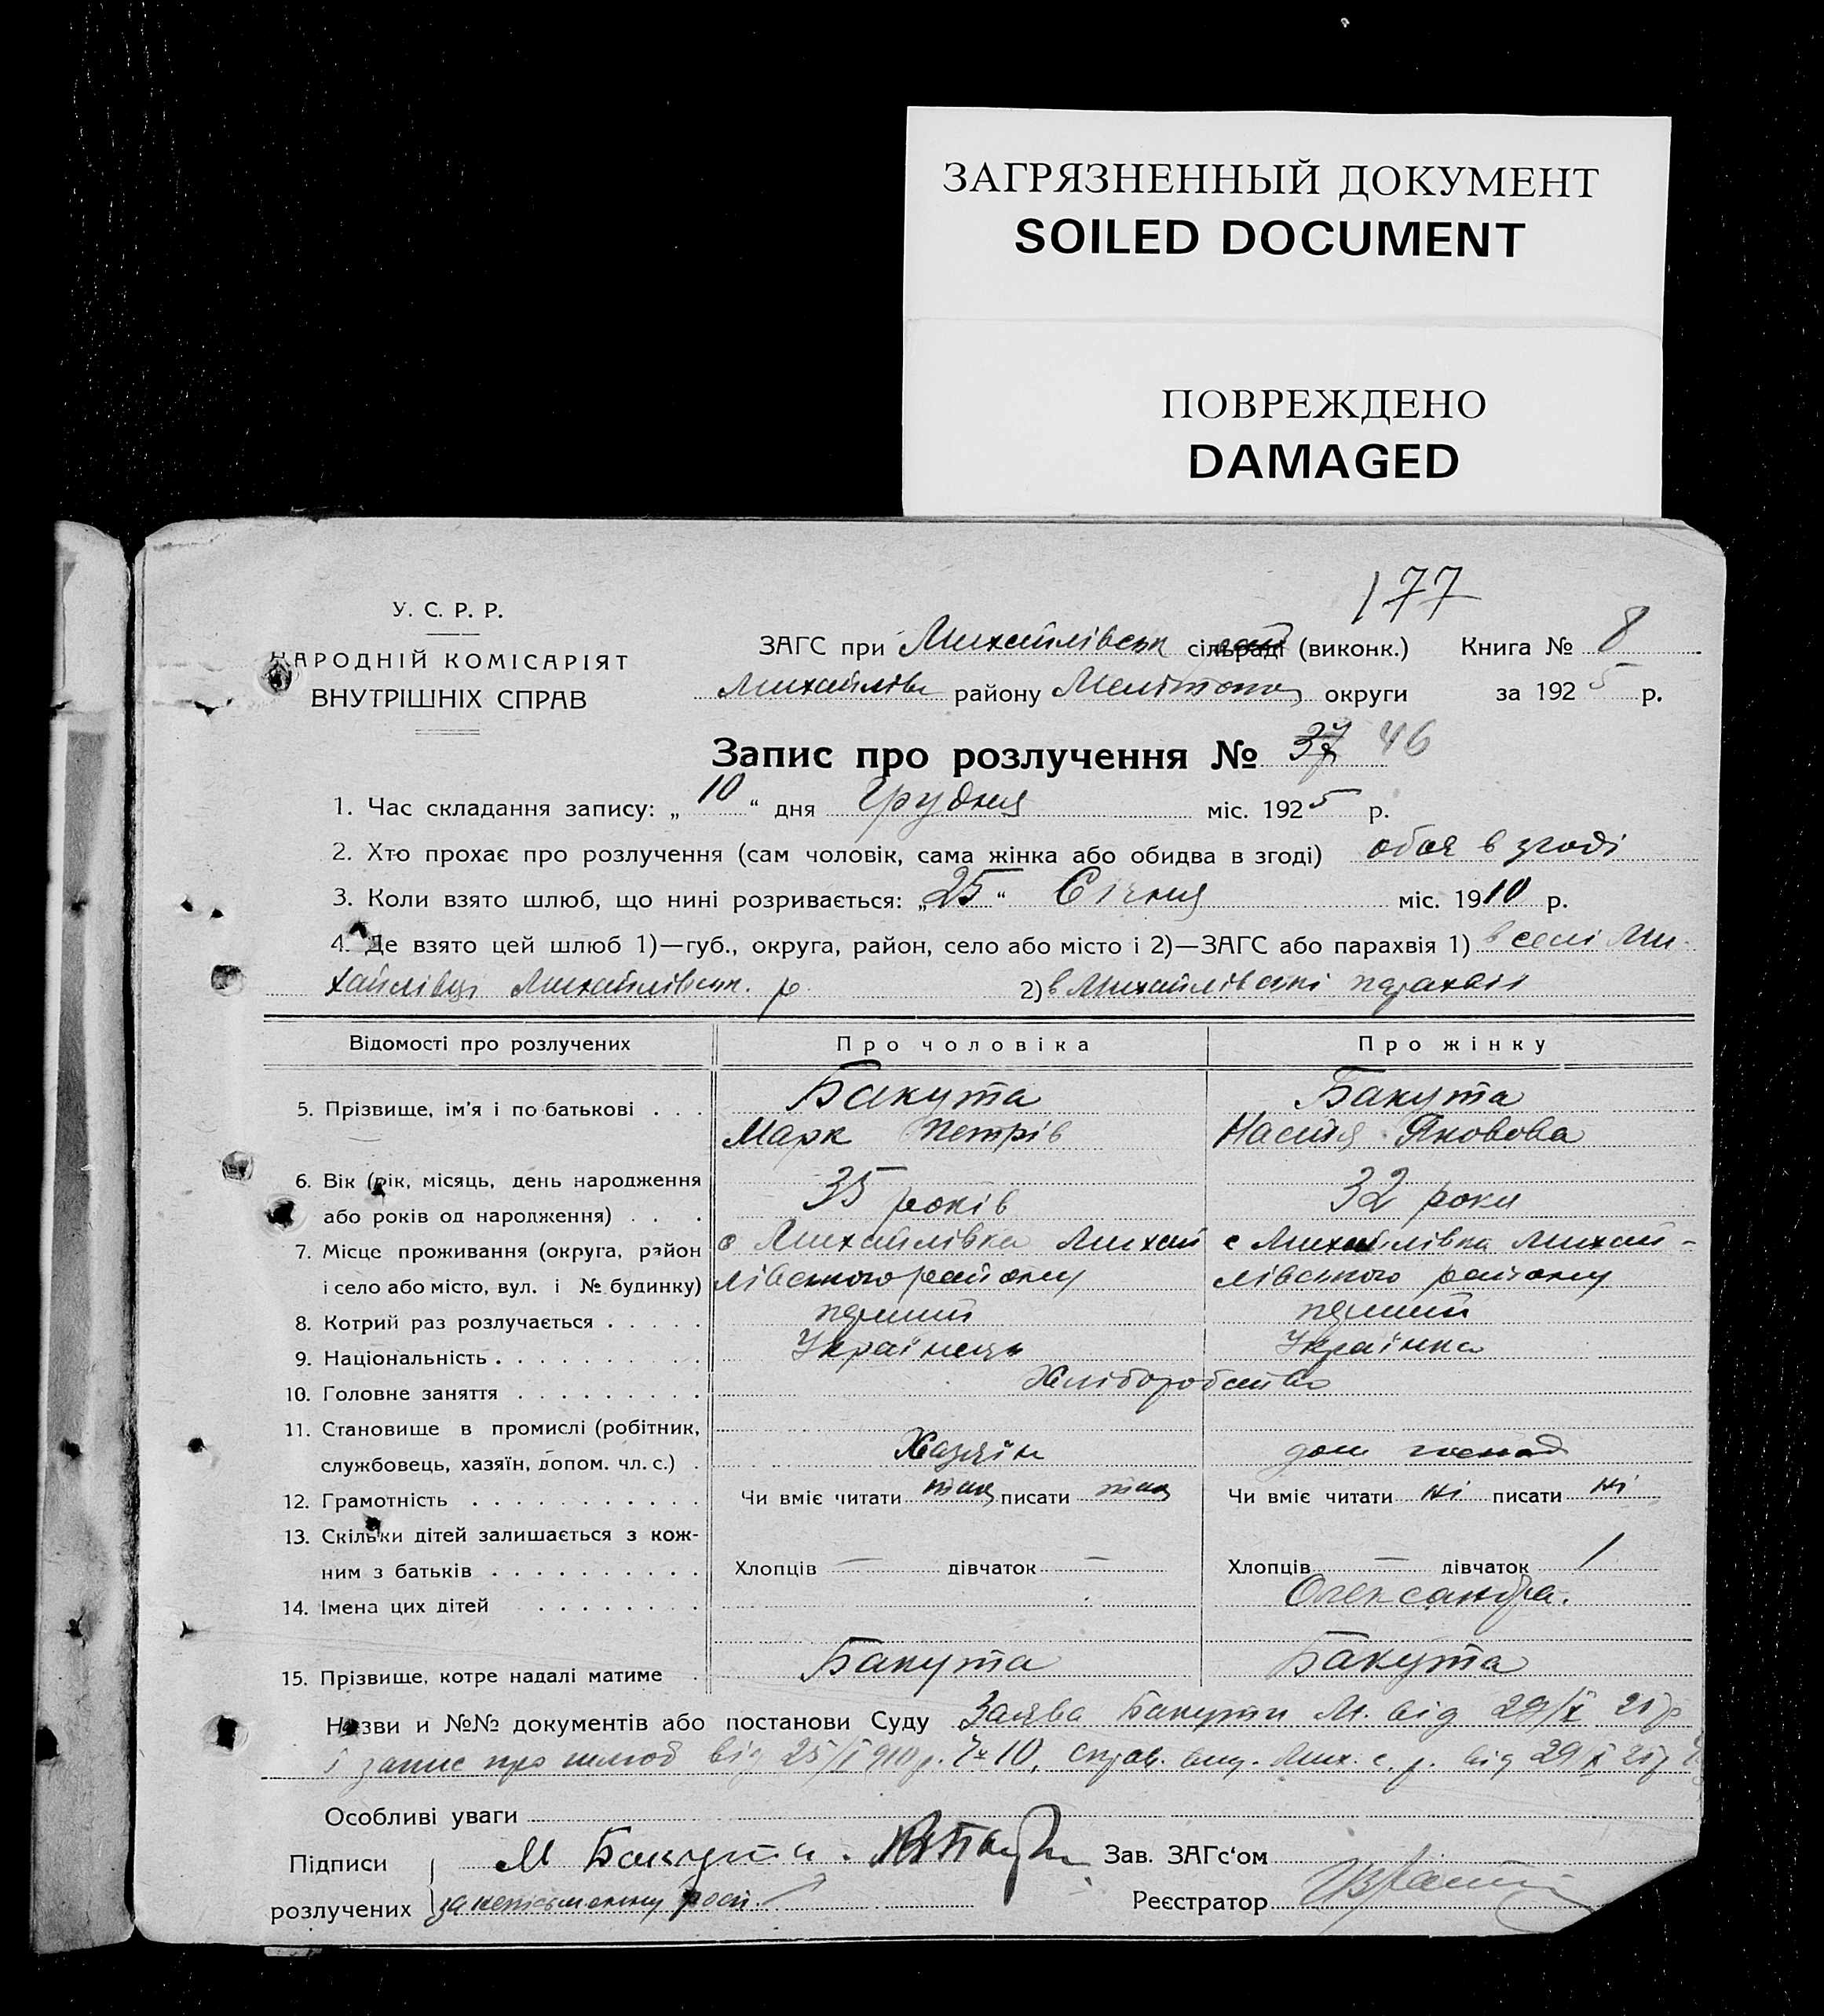 ЗАГРЯЗНЕННЫЙ ДОКУМЕНТ
SOILED DOCUMENT
ПОВРЕЖДЕНО
DAMAGED
177
У. С. Р. Р.
НАРОДНІЙ КОМІСАРІЯТ
ВНУТРІШНІХ СПРАВ
ЗАГС при Михайлівськ сільраді (виконк.) Книга № 8
Михайлівк району Мелітопол округи за 1925 р.
Запис про розлучення № 37 46
1. Час складання запису: „10“ дня Грудня міс. 1925 р.
2. Хто прохає про розлучення (сам чоловік, сама жінка або обидва в згоді) обоє в згоді
3. Коли взято шлюб, що нині розривається: „25“ Січня міс. 1910 р.
4. Де взято цей шлюб 1)—губ., округа, район, село або місто і 2)—ЗАГС або парахвія 1) в селі Ми-
хайлівці Михайлівськ. р. 2) в Михайлівскі парахвії
Відомості про розлучених Про чоловіка Про жінку
5. Прізвище, ім'я і по батькові . . . Бакута Бакута
Марк Петрів Настя Яковова
6. Вік (рік, місяць, день народження
або років од народження) . . . 35 років 32 роки
7. Місце проживання (округа, район с Михайлівка Михай с Михайлівка Михай-
і село або місто, вул. і № будинку) лівського району лівського району
8. Котрий раз розлучається . . . . . перший перший
9. Національність . . . . . . . . . . Українець Українка
10. Головне заняття . . . . . . . . . Хліборобство
11. Становище в промислі (робітник,
службовець, хазяїн, допом. чл. с.) . Хазяїн дом господ
12. Грамотність . . . . . . . . . . . Чи вміє читати так писати так Чи вміє читати ні писати ні
13. Скільки дітей залишається з кож-
ним з батьків . . . . . . . . . . Хлопців — дівчаток — Хлопців — дівчаток 1
14. Імена цих дітей . . . . . . . . Олександра.
15. Прізвище, котре надалі матиме . Бакута Бакута
Назви и №№ документів або постанови Суду Заява Бакути М. від 29/X 25 р
і запис про шлюб від 25/I 910 р. Ч 10, справ. вид. Мих. с. р. від 29/X 25 р
Особливі уваги
Підписи М Бакута. Зав. ЗАГс'ом
розлучених за неписьменну розп. Реєстратор